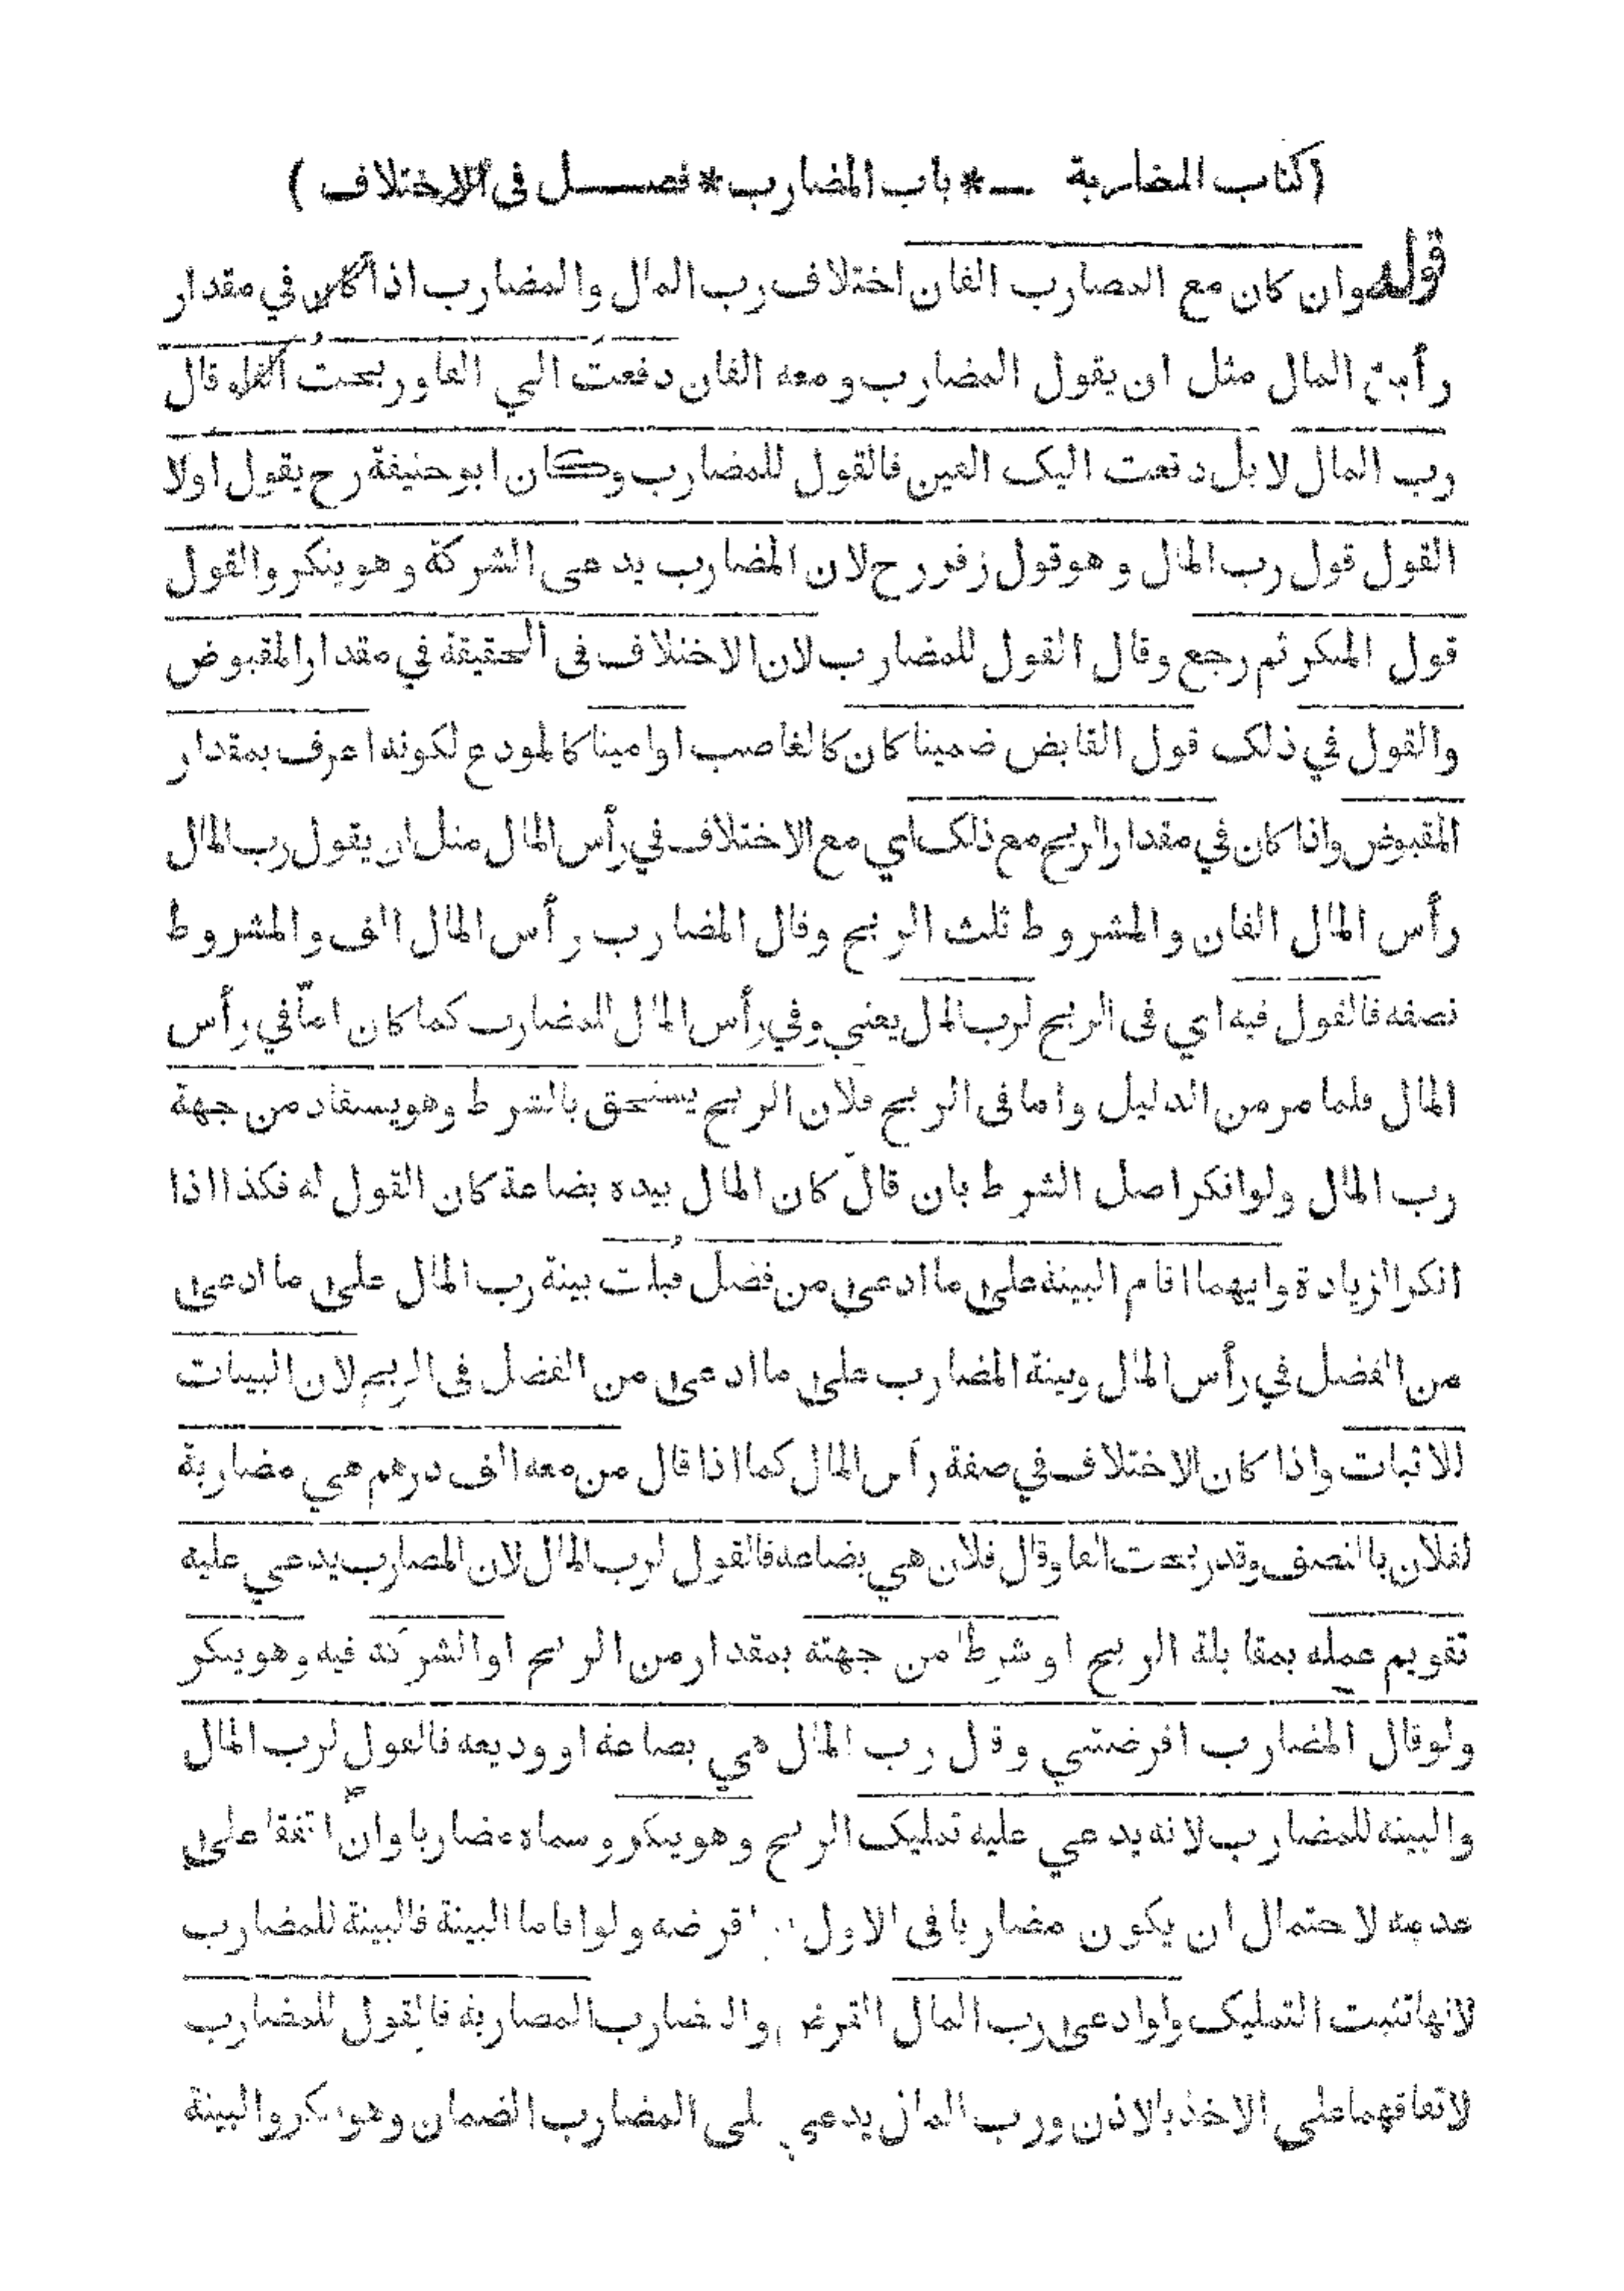 (كتاب المضاربة — * باب المضارب * فصل في الاختلاف)
قوله وان كان مع المضارب الفان اختلاف رب المال والمضارب اذا كان في مقدار
رأس المال مثل ان يقول المضارب ومعه الفان دفعت الي الفا وربحت الفا وقال
رب المال لا بل دفعت اليك الفين فالقول للمضارب وكان ابو حنيفة رح يقول اولا
القول قول رب المال وهو قول زفر رح لان المضارب يدعى الشركة وهو ينكر والقول
قول المنكر ثم رجع وقال القول للمضارب لان الاختلاف فى الحقيقة في مقدار المقبوض
والقول في ذلك قول القابض ضمينا كان كالغاصب او امينا كالمودع لكونه اعرف بمقدار
المقبوض واذا كان في مقدار الربح مع ذلك اي مع الاختلاف في رأس المال مثل ان يقول رب المال
رأس المال الفان والمشروط ثلث الربح وقال المضارب رأس المال الف والمشروط
نصفه فالقول فيه اي فى الربح لرب المال يعني وفي رأس المال للمضارب كما كان اما في رأس
المال فلما مر من الدليل واما فى الربح فلان الربح يستحق بالشرط وهو يستفاد من جهة
رب المال ولو انكر اصل الشرط بان قال كان المال بيده بضاعة كان القول له فكذا اذا
انكر الزيادة وايهما اقام البينة على ما ادعى من فضل قبلت بينة رب المال على ما ادعى
من الفضل في رأس المال وبينة المضارب على ما ادعى من الفضل فى الربح لان البينات
للاثبات واذا كان الاختلاف في صفة رأس المال كما اذا قال من معه الف درهم هي مضاربة
لفلان بالنصف وقد ربحت الفا وقال فلان هي بضاعة فالقول لرب المال لان المضارب يدعي عليه
تقويم عمله بمقابلة الربح او شرطا من جهته بمقدار من الربح او الشركة فيه وهو ينكر
ولو قال المضارب اقرضتني وقال رب المال هي بضاعة او وديعة فالقول لرب المال
والبينة للمضارب لانه يدعي عليه تمليك الربح وهو ينكر وسماه مضاربا وان اتفقا على
عدمه لاحتمال ان يكون مضاربا فى الاول اقرضه ولو اقاما البينة فالبينة للمضارب
لانها تثبت التمليك ولو ادعى رب المال القرض والمضارب المضاربة فالقول للمضارب
لاتفاقهما على الاخذ بالاذن ورب المال يدعي على المضارب الضمان وهو ينكر والبينة